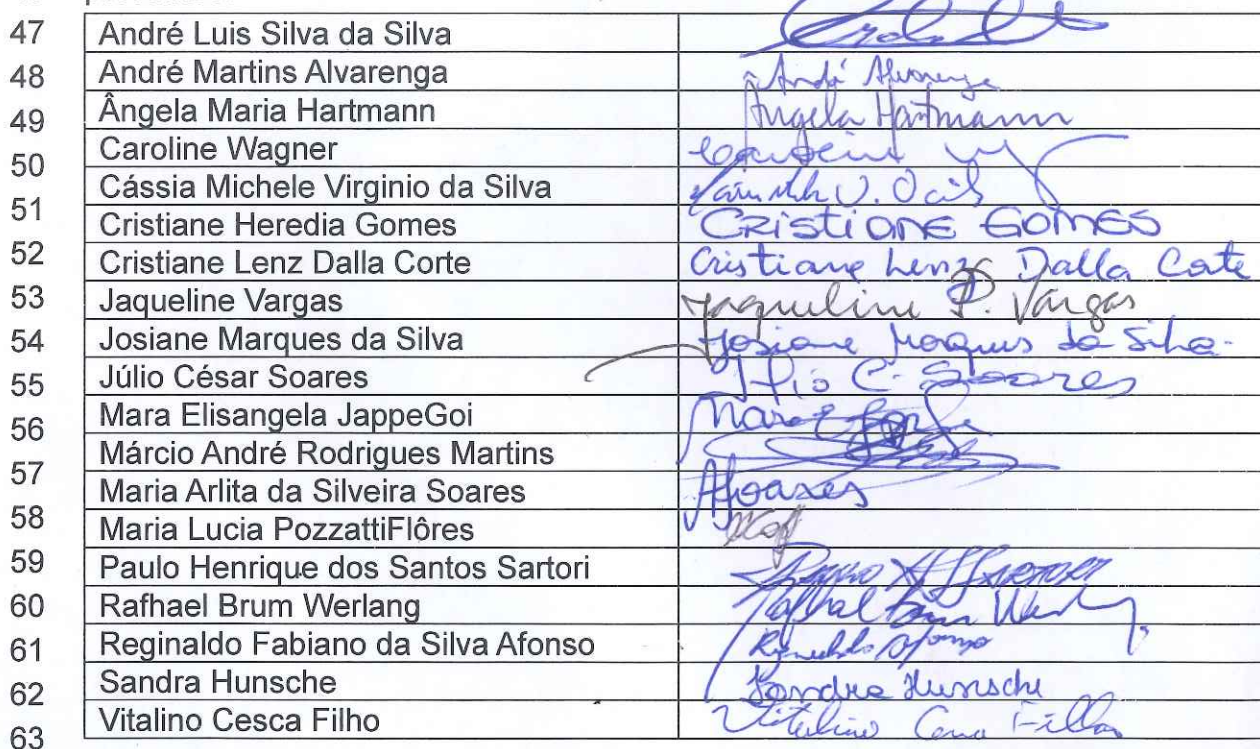 47 André Luis Silva da Silva
48 André Martins Alvarenga André Alvarenga
49 Ângela Maria Hartmann Angela Hartmann
50 Caroline Wagner
51 Cássia Michele Virginio da Silva
52 Cristiane Heredia Gomes CRISTIANE GOMES
53 Cristiane Lenz Dalla Corte Cristiane Lenz Dalla Corte
54 Jaqueline Vargas Jaqueline P. Vargas
55 Josiane Marques da Silva Josiane Marques da Silva
56 Júlio César Soares Júlio C. Soares
57 Mara Elisangela JappeGoi
58 Márcio André Rodrigues Martins
59 Maria Arlita da Silveira Soares ASoares
60 Maria Lucia PozzattiFlôres
61 Paulo Henrique dos Santos Sartori
62 Rafhael Brum Werlang Rafhael Brum
63 Reginaldo Fabiano da Silva Afonso Reginaldo Afonso
Sandra Hunsche Sandra Hunsche
Vitalino Cesca Filho Vitalino Cesca Filho